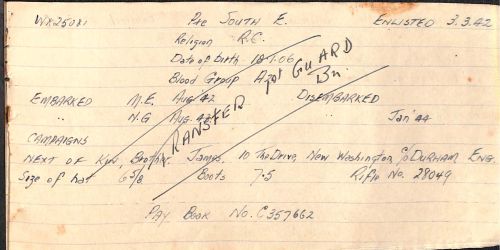 WX25081 Pte SOUTH E. ENLISTED 3.3.42
Religion R.C.
Date of birth 18.1.06
Blood Group A
TRANSFER 1ST GUARD Bn.
EMBARKED M.E. Aug 42 DISEMBARKED
" N.G Aug. 42 Jan 44
CAMPAIGNS
NEXT OF Kin, Brother. James, 10 The Drive, New Washington, C/o DURHAM ENG.
Size of hat 6 5/8 Boots 7.5 Rifle No. 28049
PAY BOOK No. C357662